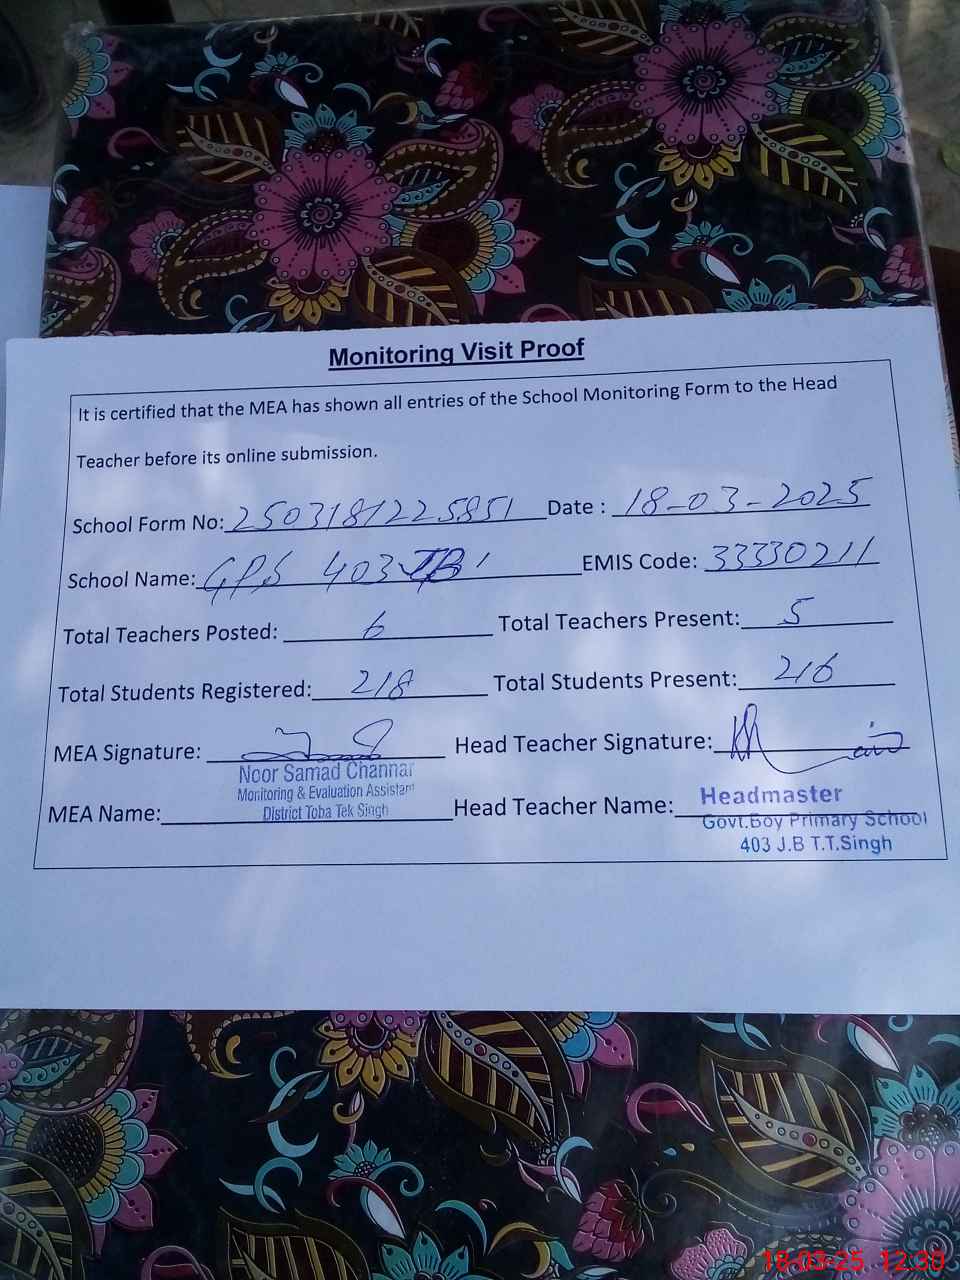 Monitoring Visit Proof
It is certified that the MEA has shown all entries of the School Monitoring Form to the Head
Teacher before its online submission.
School Form No: 2503181225851 Date : 18-03-2025
School Name: GPS 403 JB EMIS Code: 33330211
Total Teachers Posted: 6 Total Teachers Present: 5
Total Students Registered: 218 Total Students Present: 216
MEA Signature: Head Teacher Signature:
Noor Samad Channar
Monitoring & Evaluation Assistant
District Toba Tek Singh
MEA Name: Head Teacher Name:
Headmaster
Govt.Boy Primary School
403 J.B T.T.Singh
18-03-25 12:30